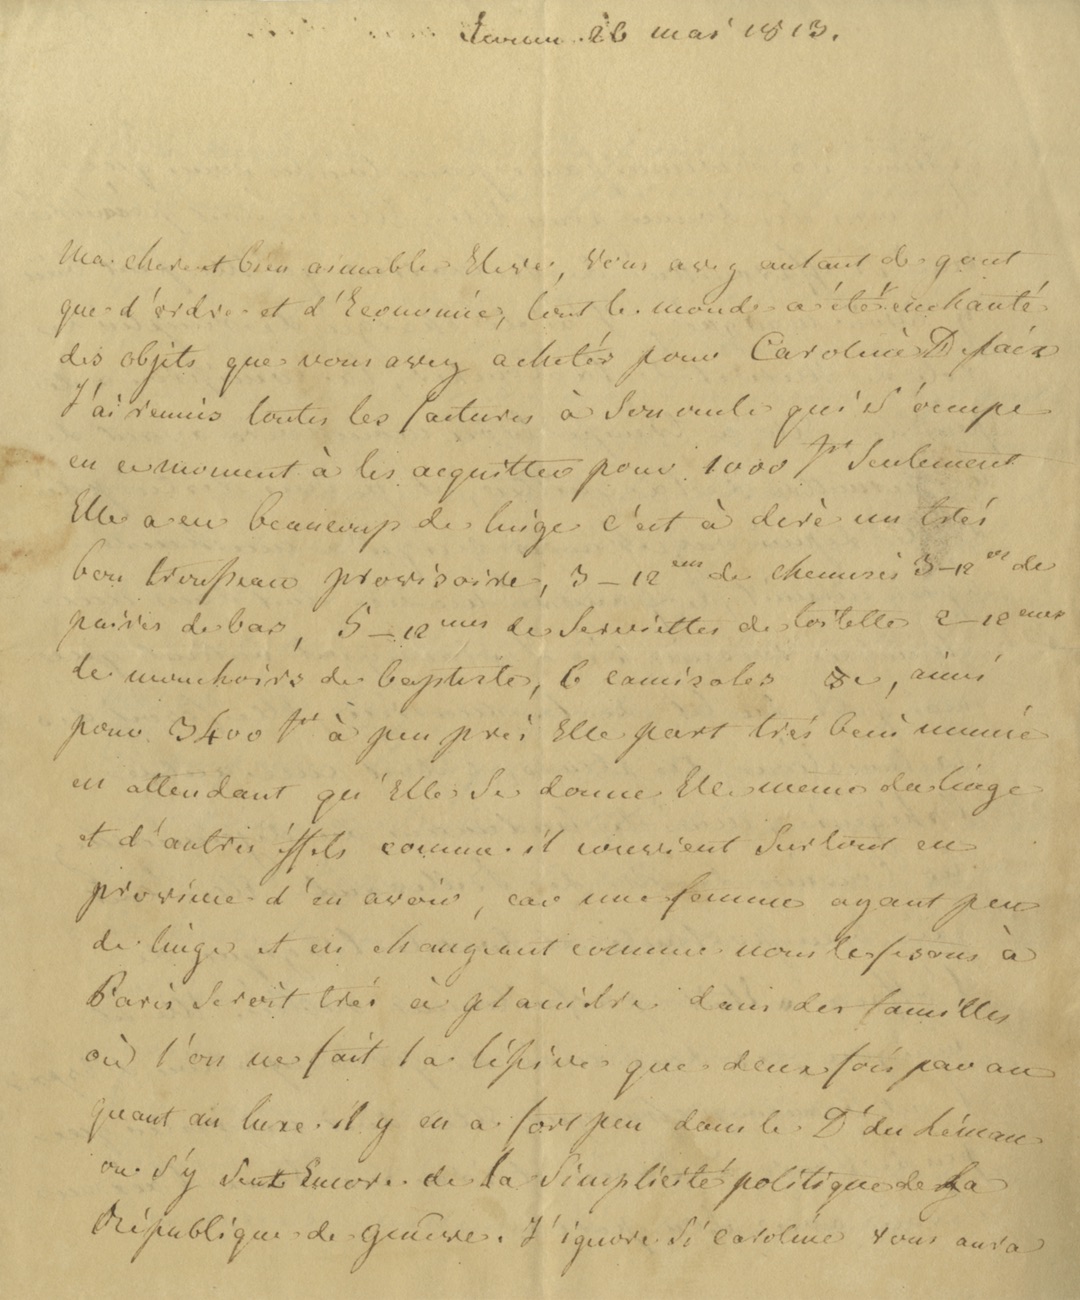 Ecouen 26 mai 1813.
Ma chere et bien aimable Eleve, vous avez autant de gout
que d'ordre et d'Economie, tout le monde a été enchanté
des objets que vous avez achetés pour Caroline
J'ai remis toutes les factures à Son oncle qui S'occupe
en ce moment à les acquitter pour 1000 fr Seulement
Elle a eu beaucoup de linge c'est à dire un trés
bon trousseau provisoire, 3_12 eme de chemises 3_12 es de
paires de bas, 5_12 emes de Serviettes de toilette 2_12 emes
de mouchoirs de baptiste, 6 camisoles &c, ainsi
pour 3400 fr à peu prés Elle part trés bien munie
en attendant qu'Elle Se donne Elle meme du linge
et d'autres éffets comme il convient Surtout en
province d'en avoir, car une femme ayant peu
de linge et en changeant comme nous le fesons à
Paris Seroit trés à plaindre dans des familles
où l'on ne fait la léssive que deux fois par an
quant au luxe il y en a fort peu dans le Dt du Léman
on S'y Sent Encore de la Simplicité politique de la
République de Genêve. J'ignore Si Caroline vous aura